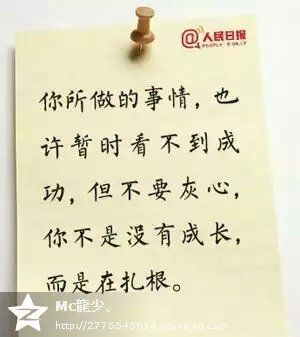 @人民日报
PEOPLE'S DAILY
你所做的事情，也
许暂时看不到成
功，但不要灰心，
你不是没有成长，
而是在扎根。
Mc龍少、
http://2775545614.qzone.qq.com